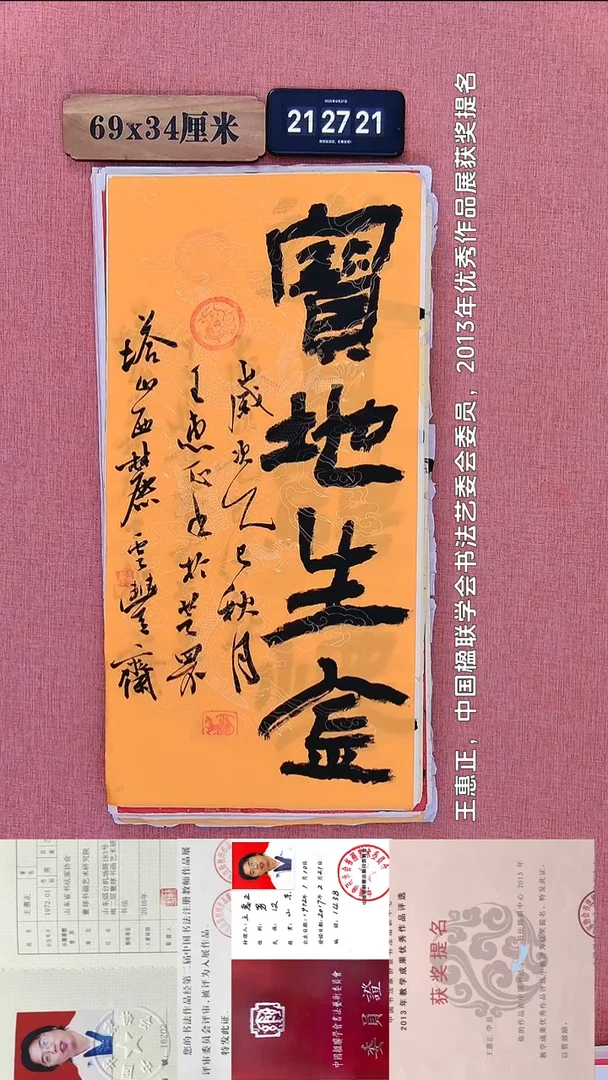 69x34厘米
21 27 21
寶地生金
歲次乙巳秋月
王惠正书於芝罘
塔山西麓雲豐齋
王惠正，中国楹联学会书法艺委会委员，2013年优秀作品展获奖提名
王惠正
男
1972.01
山东省书法家协会
书法
2016年
您的书法作品经第二届中国书法注册教师作品展
评审委员会评审，被评为入展作品。
特发此证
持证人：王惠正
性别：男
民族：汉
籍贯：山东
编号：1238
中国楹聯學會書法藝術委員會
委員證
2013年教学成果优秀作品评选
获奖提名